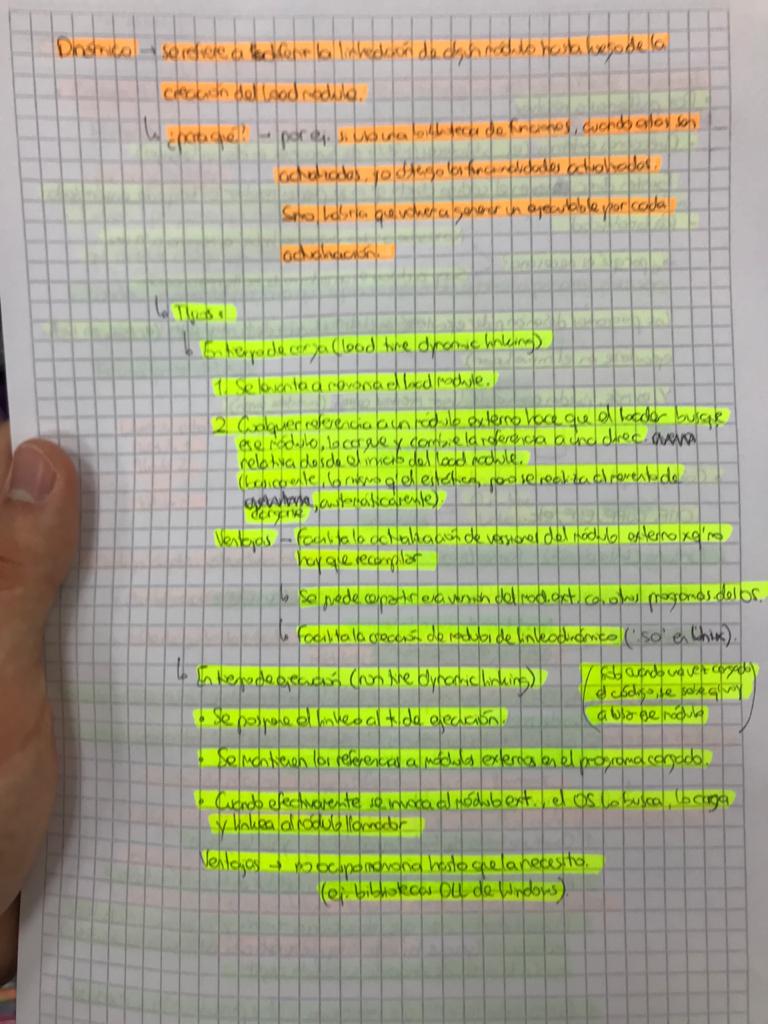 Dinámico → se refiere a transferir la linkedición de algún módulo hasta luego de la
creación del load módulo.
↳ ¿para qué? → por ej. si uso una biblioteca de funciones, cuando estas son
actualizadas, yo obtengo las funcionalidades actualizadas.
Sino habría que volver a generar un ejecutable por cada
actualización.
↳ Tipos:
↳ En tiempo de carga (load time dynamic linking)
1. Se levanta a memoria el load module.
2. Cualquier referencia a un módulo externo hace que el loader busque
ese módulo, lo cargue y cambie la referencia a una direc.
relativa desde el inicio del load module.
(básicamente, lo mismo q' el estático, pero se realiza al momento de
cargarse, automáticamente)
Ventajas → Facilita la actualización de versiones del módulo externo xq' no
hay que recompilar
↳ Se puede compartir esa versión del mod. ext. con otros programas del os.
↳ Facilita la creación de módulos de linkeo dinámico ('.so' en Unix).
↳ En tiempo de ejecución (run time dynamic linking)
(solo cuando una vez cargado
el código, se salte
a otro módulo)
• Se pospone el linkeo al t. de ejecución.
• Se mantienen las referencias a módulos externos en el programa cargado.
• Cuando efectivamente se invoca al módulo ext., el OS lo busca, lo carga
y linkea al módulo llamador
Ventajas → no ocupo memoria hasta que la necesito.
(ej. bibliotecas DLL de Windows).